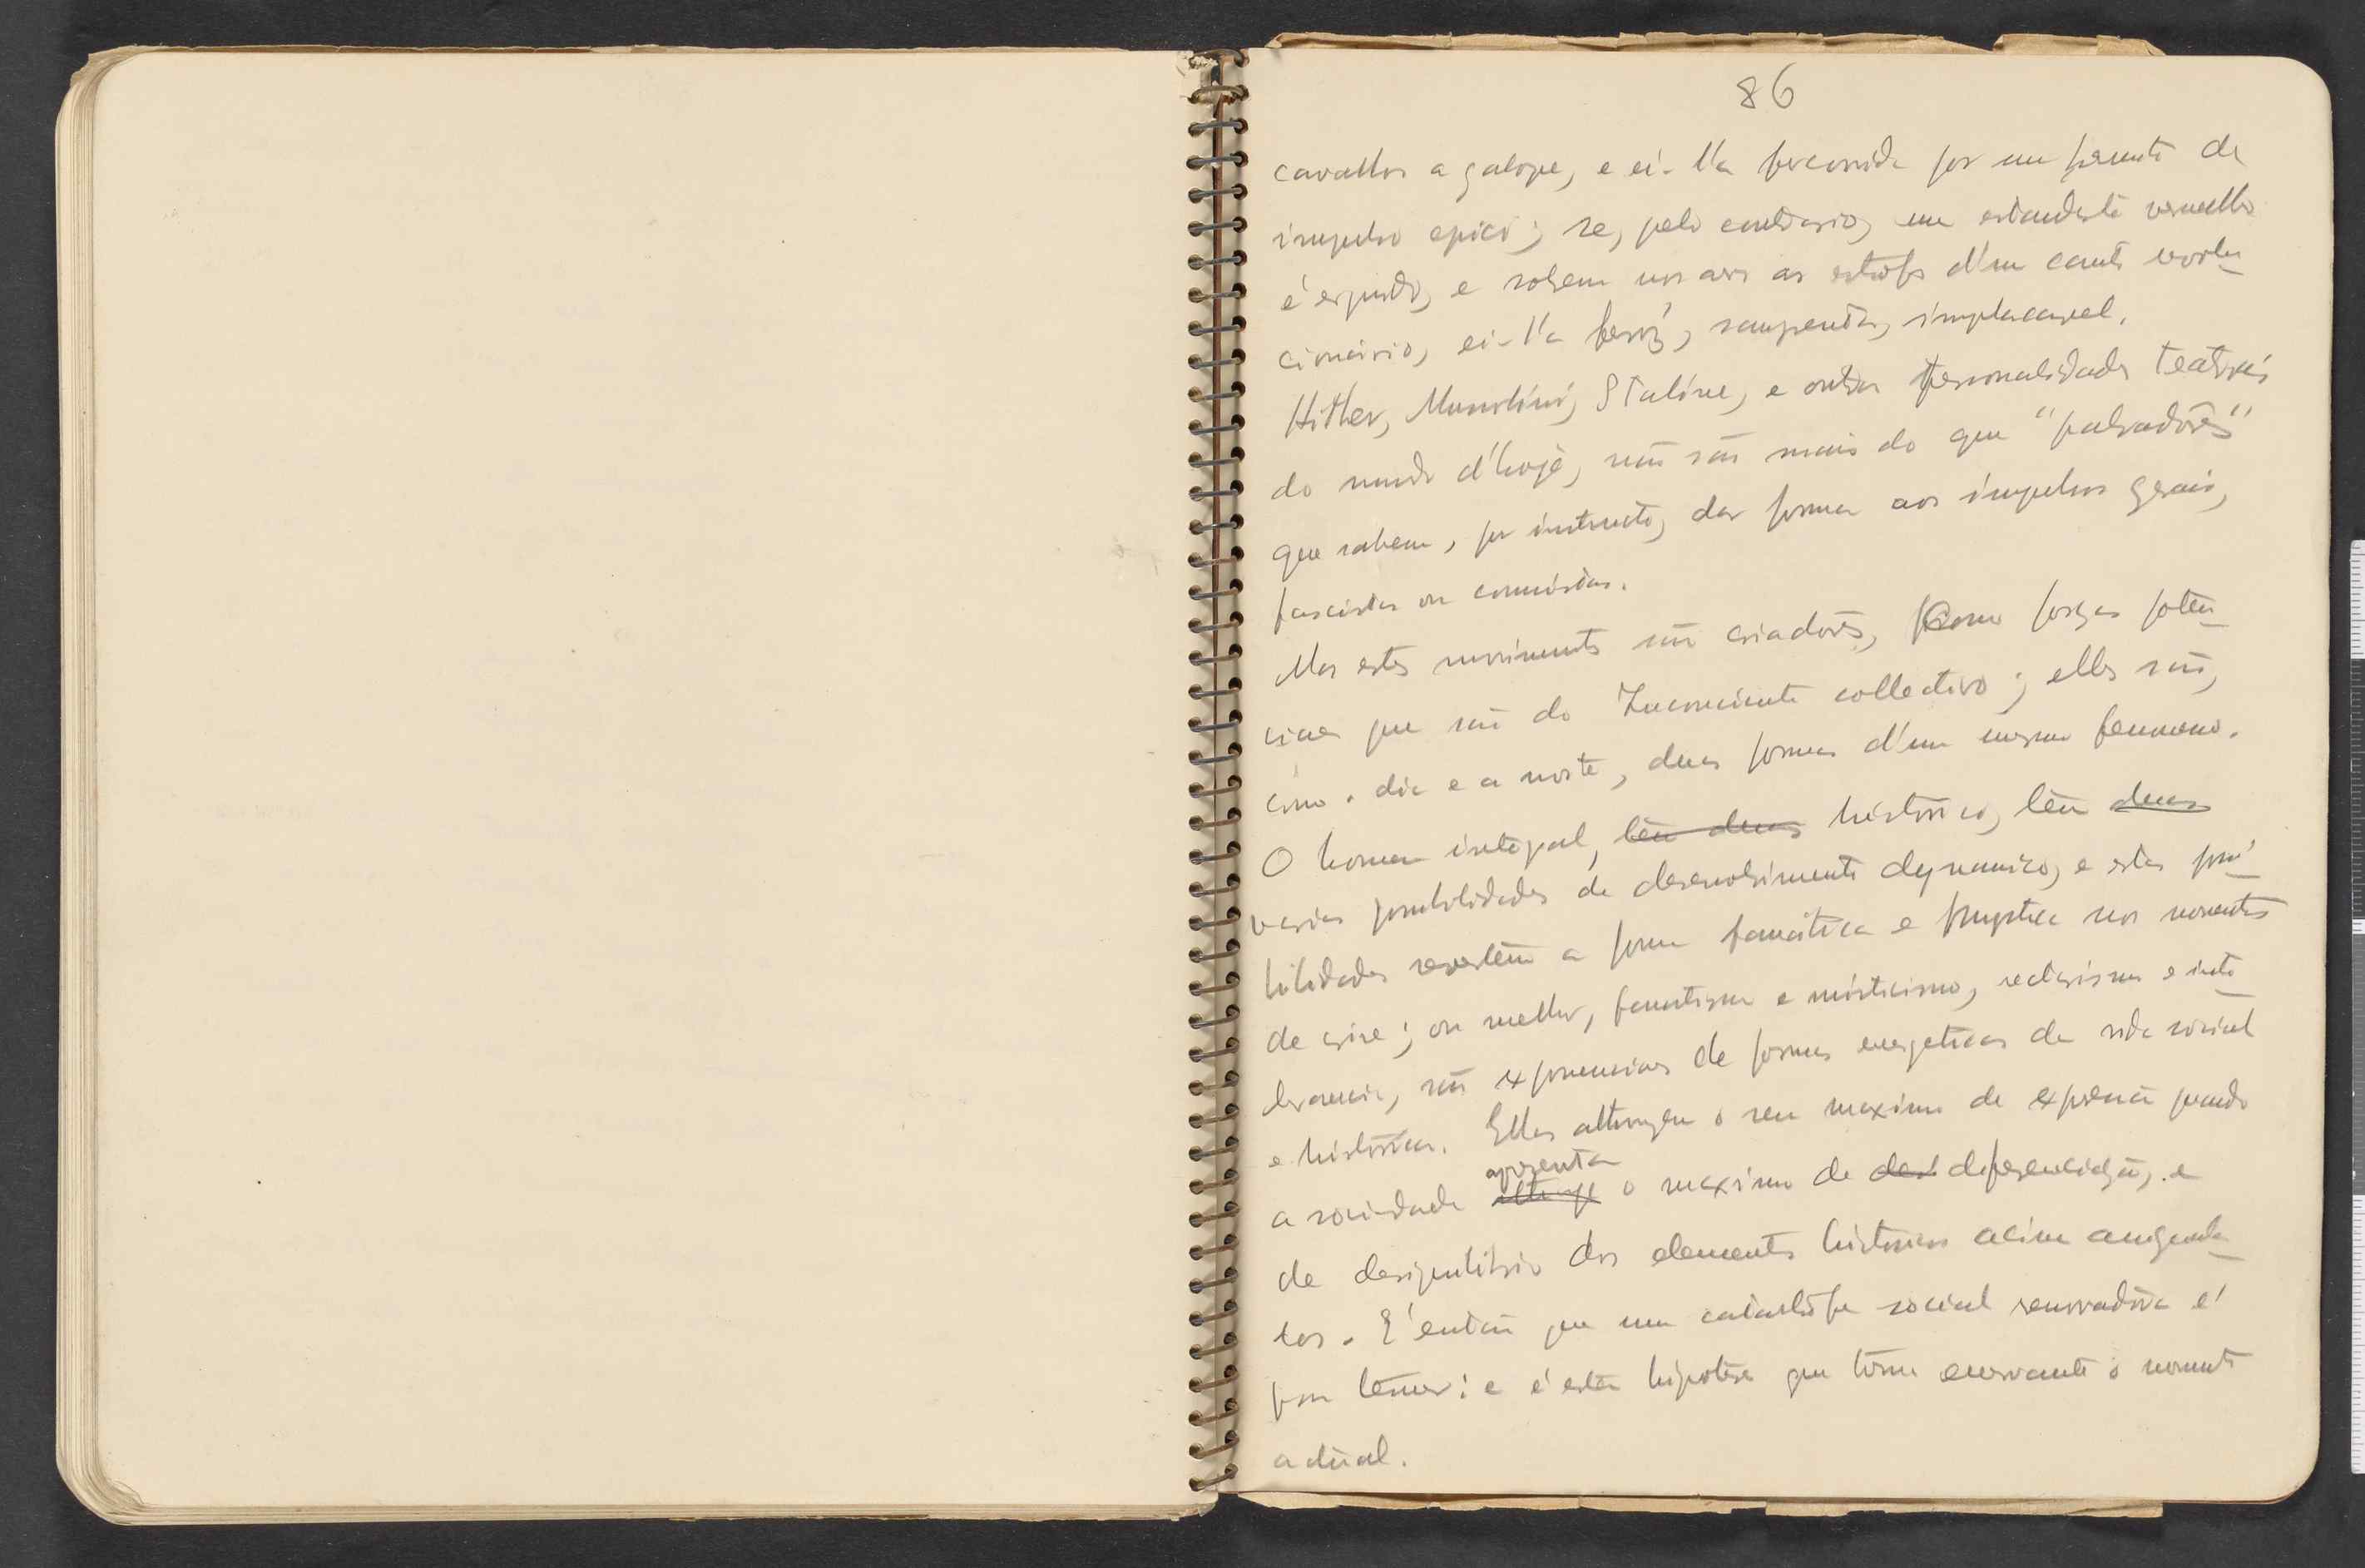 86
cavallos a galope, e ei-l'a percorrida por um fremito de
impulso epico; se, pelo contrario, um estandarte vermelho
é erguido, e sobem nos ares as estrofes d'um canto revolu-
cionário, ei-l'a feroz, sangrenta, implacavel.
Hitler, Mussolini, Staline, e outras personalidades teatrais
do mundo d'hoje, não são mais do que
que sabem, por instincto, dar forma aos impulsos gerais,
fascistas ou comunistas.
Mas estes movimentos são criadores, como forças poten-
ciaes que são do Inconsciente collectivo; elles são,
como o dia e a noite, duas formas d'um mesmo fenomeno.
O homem integral, tem duas historico, tem duas
varias possibilidades de desenvolvimento dynamico, e estas possi-
bilidades revestem a forma fanática e mystica nos momentos
de crise; ou melhor, fanatismo e misticismo, sectarismo e into-
lerancia, são exponenciaes de formas energeticas da vida social
e historica. Ellas attingem o seu maximo de expressão quando
apresenta
a sociedade attinge o maximo de des diferenciação, e
de desiquilibrio dos elementos historicos acima
tos. E' então que uma catastrofe social renovadora é
para temer: e é esta hipotese que torna enervante o momento
actual.